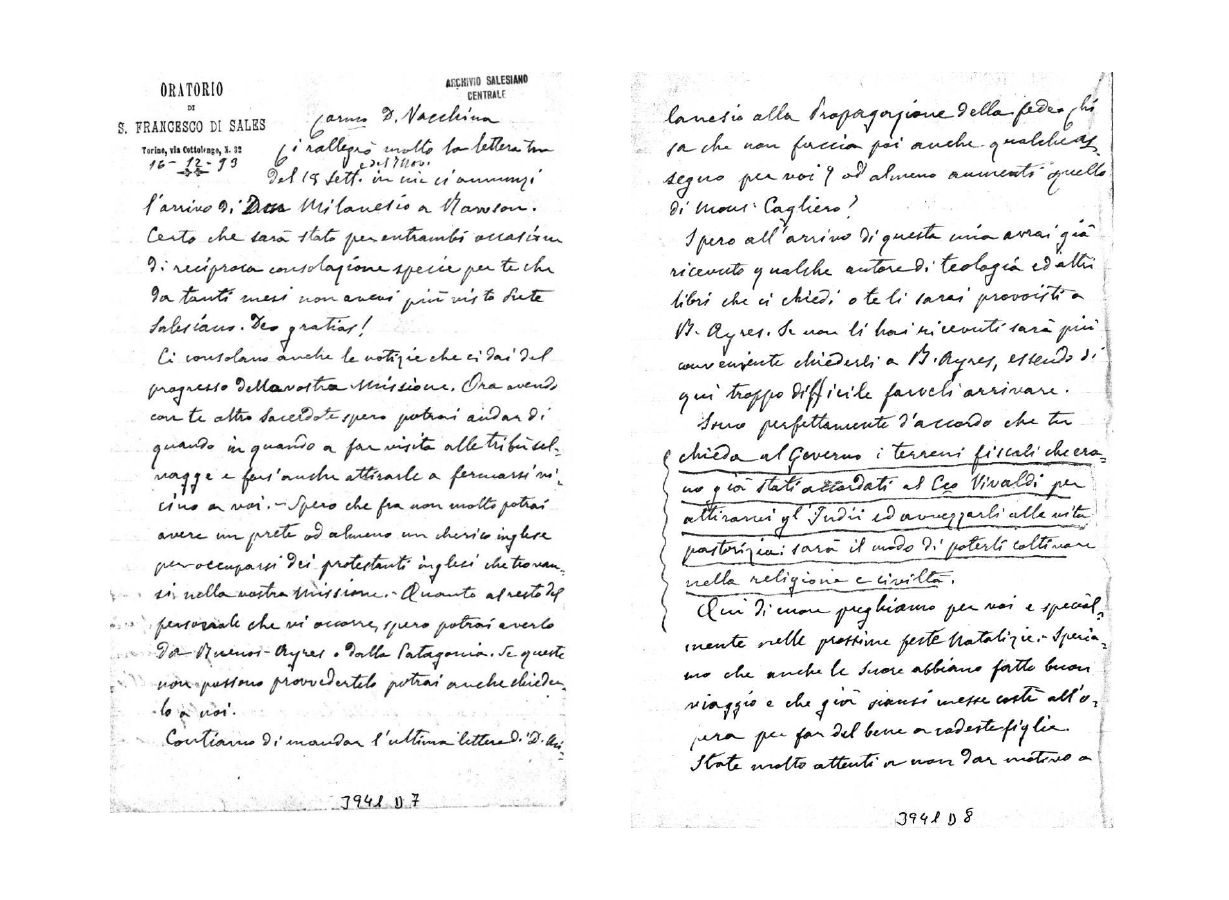 ORATORIO
DI
S. FRANCESCO DI SALES
Torino, via Cottolengo, N. 32
16-12-93
ARCHIVIO SALESIANO
CENTRALE
Carmo D. Vacchina
Ci rallegrò molto la lettera tua
e del 7 Nov.
del 18 Sett. in cui ci annunzi
l'arrivo di Don Milanesio a Rawson.
Certo che sarà stato per entrambi occasione
di reciproca consolazione specie per te che
da tanti mesi non avevi più visto
Salesiano. Deo gratias!
Ci consolano anche le notizie che ci dai del
progresso della vostra Missione. Ora avendo
con te altro Sacerdote spero potrai andar di
quando in quando a far visita alle tribù sel-
vagge e fors'anche attirarle a fermarsi vi-
cino a voi. - Spero che fra non molto potrai
avere un prete od almeno un cherico inglese
per occuparsi dei protestanti inglesi che trovan-
si nella vostra missione. - Quanto al resto del
personale che vi occorre, spero potrai averlo
da Buenos-Ayres o dalla Patagonia. Se queste
non possono provvedertelo potrai anche chieder-
lo a noi.
Contiamo di mandar l'ultima lettera di D. Mi-
3941 D 7
lanesio alla Propagazione della fede chi
sa che non faccia poi anche qualche as-
segno per voi od almeno aumenti quello
di Mons. Cagliero?
Spero all'arrivo di questa mia avrai già
ricevuto qualche autore di teologia ed altri
libri che ci chiedi o te li sarai provvisti a
B. Ayres. Se non li hai ricevuti sarà più
conveniente chiederli a B. Ayres, essendo di
qui troppo difficile farveli arrivare.
Sono perfettamente d'accordo che tu
chieda al Governo i terreni fiscali che era-
no già stati accordati al Ceo Vivaldi per
attirarvi gl'Indii ed avvezzarli alla vita
pastorizia: sarà il modo di poterli coltivare
nella religione e civiltà.
Qui di cuore preghiamo per voi e special-
mente nelle prossime feste Natalizie. - Speria-
mo che anche le Suore abbiano fatto buon
viaggio e che già siansi messe costì all'o-
pera per far del bene a codeste figlie.
State molto attenti a non dar motivo a
3941 D 8